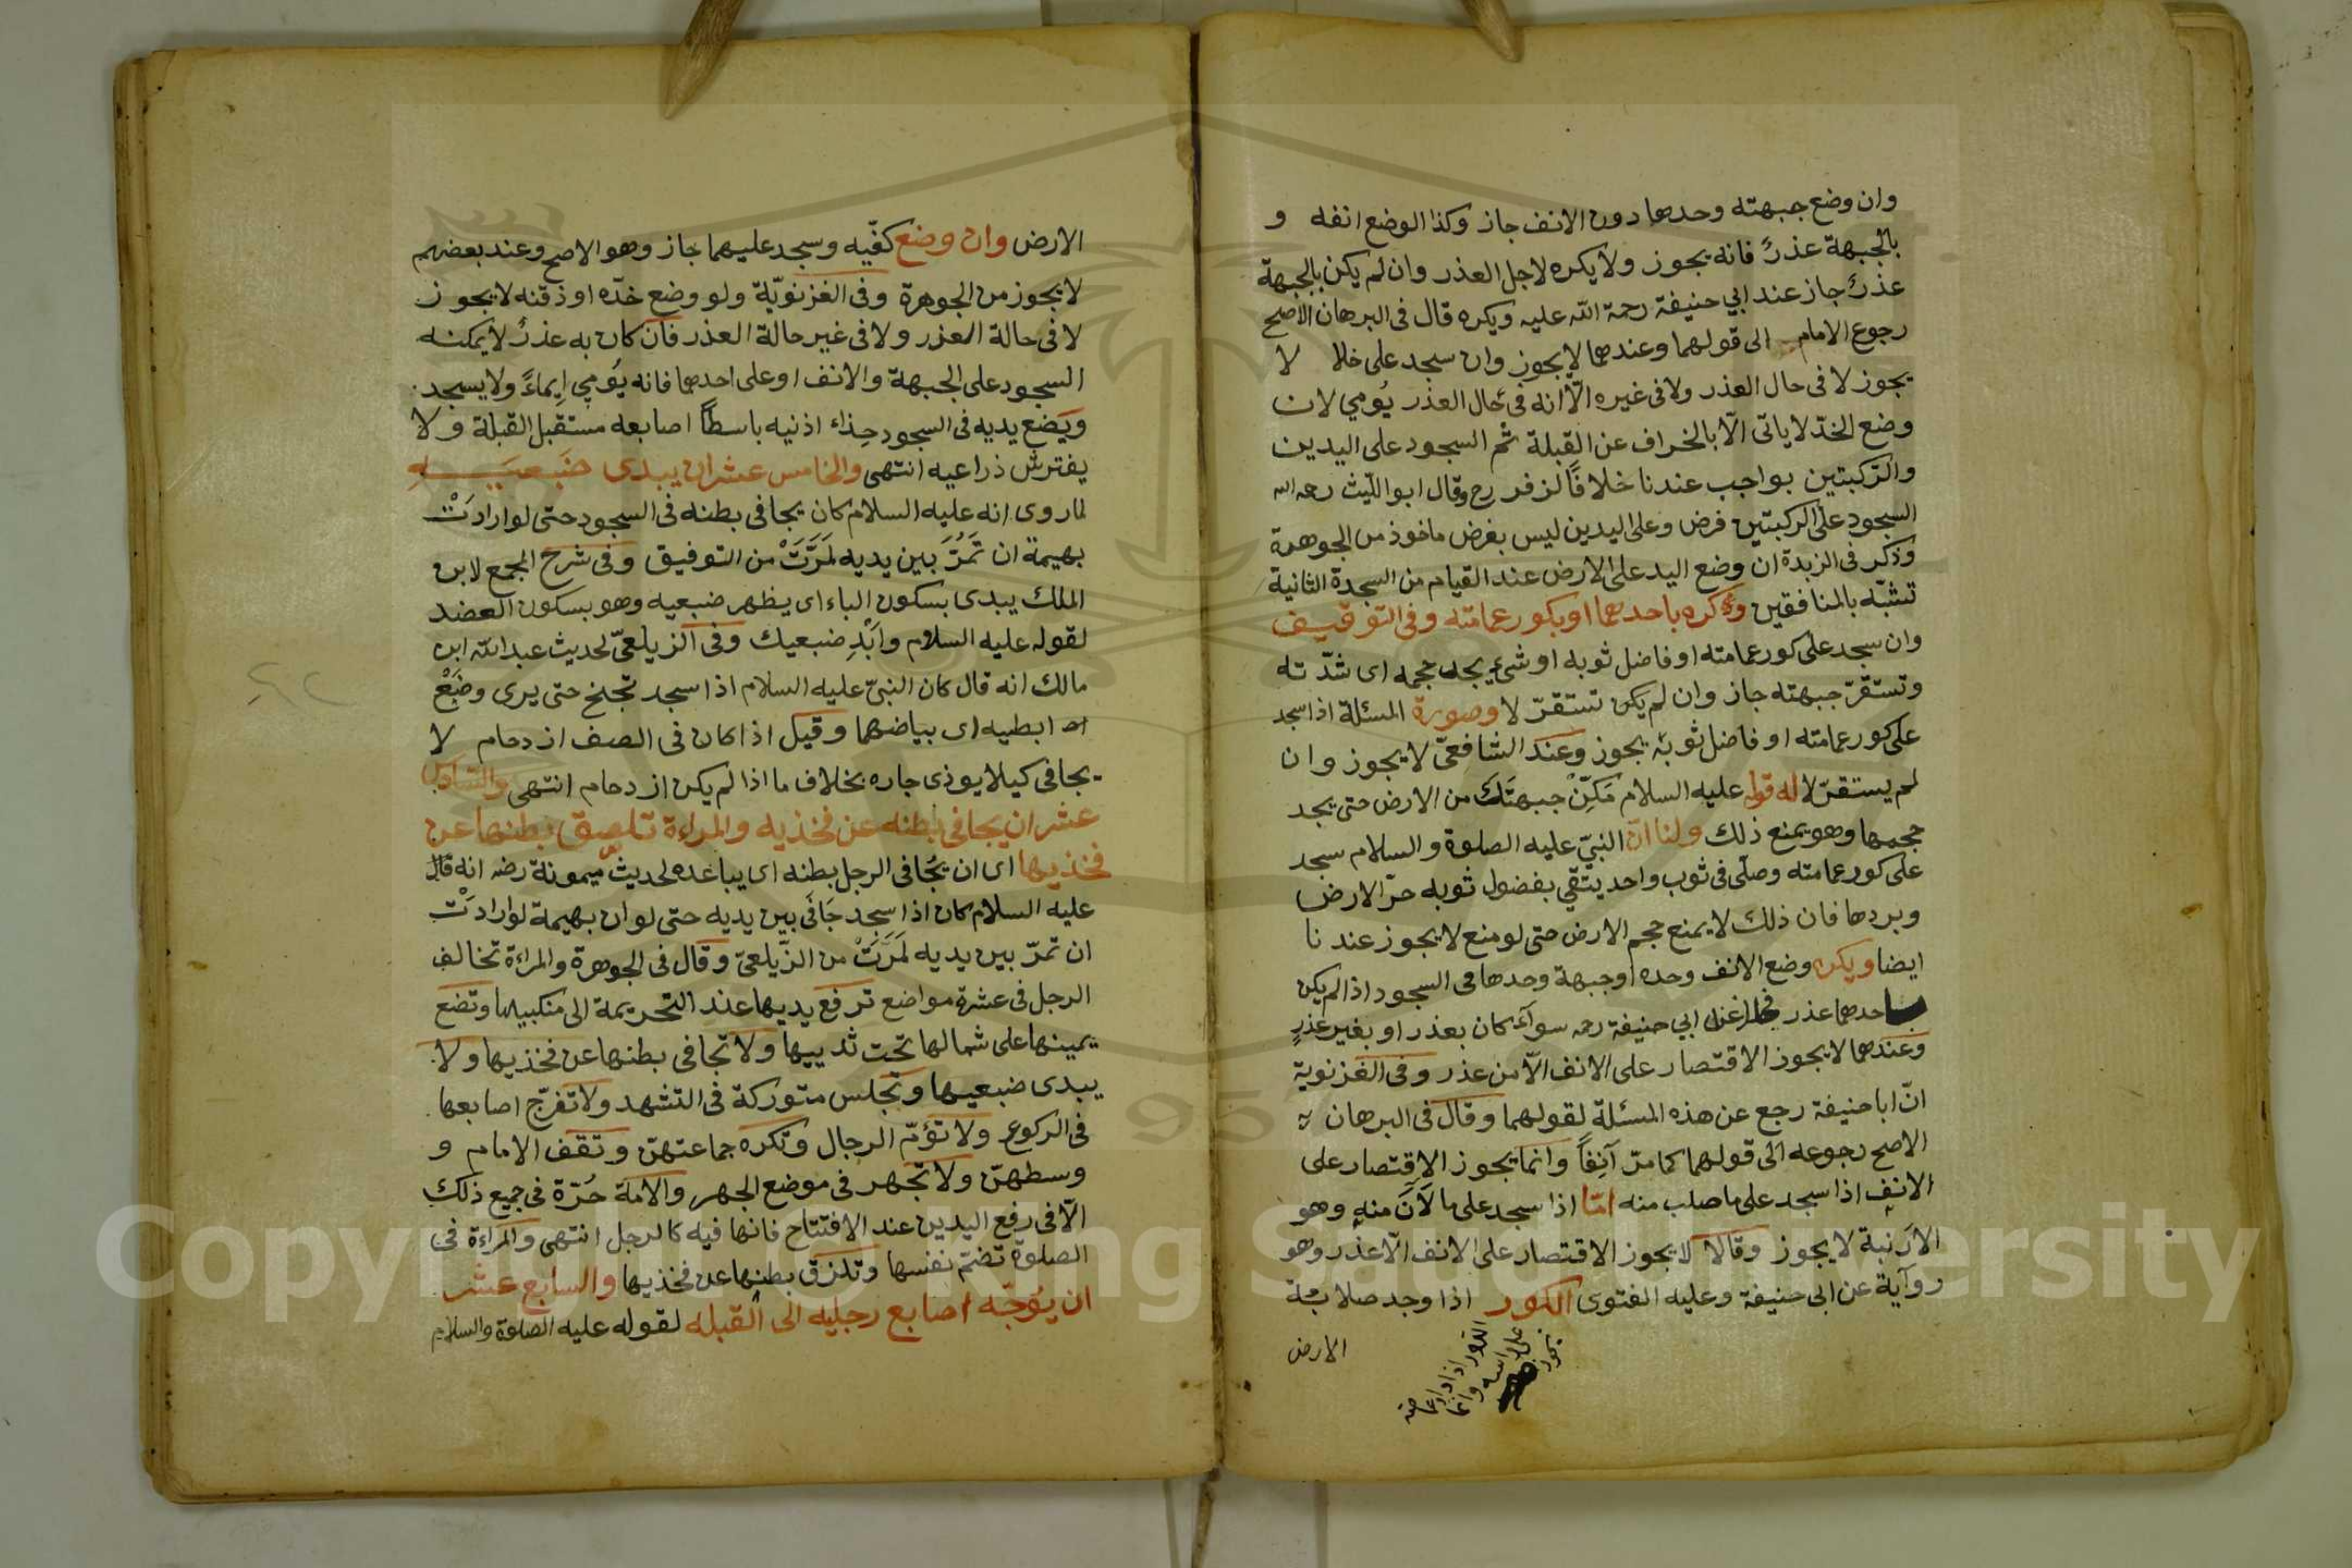 وان وضع جبهته وحدها دون الانف جاز وكذا الوضع انفه و
بالجبهة عذرٌ فانه يجوز ولا يكره لاجل العذر وان لم يكن بالجبهة
عذرٌ جاز عند ابي حنيفة رحمة الله عليه ويكره قال في البرهان الاصح
رجوع الامام الى قولهما وعندهما لا يجوز وان سجد على خلا لا
يجوز لا في حال العذر ولا في غيره الّا انه في حال العذر يُومي لان
وضع الخدّ لا ياتى الّا بالخراف عن القبلة ثم السجود على اليدين
والرّكبتين بواجب عندنا خلافًا لزفر رح وقال ابو اللّيث رحمه الله
السجود على الركبتين فرض وعلى اليدين ليس بفرض ماخوذ من الجوهرة
وذكر في الزبدة ان وضع اليد على الارض عند القيام من السجدة الثانية
تشبّه بالمنافقين وكره باحدهما او بكور عمامته وفي التوقيف
وان سجد على كور عمامته او فاضل ثوبه او شيء يجد حجمه اى شدّته
وتستقرّ جبهته جاز وان لم يكن تستقرّ لا وصورة المسئلة اذا سجد
على كور عمامته او فاضل ثوبه يجوز وعند الشافعيّ لا يجوز وان
لم يستقرّ لا له قوله عليه السلام مَكِّنْ جبهتَكَ من الارض حتى يجد
حجمها وهو يمنع ذلك ولنا انّ النبيّ عليه الصلوة والسلام سجد
على كور عمامته وصلّى في ثوب واحد يتّقي بفضول ثوبه حرّ الارض
وبردها فان ذلك لا يمنع حجم الارض حتى لو منع لا يجوز عند نا
ايضا ويكره وضع الانف وحده او جبهة وحدها في السجود اذا لم يكن
باحدهما عذر عند ابي حنيفة رحه سوآء كان بعذر او بغير عذرٍ
وعندهما لا يجوز الاقتصار على الانف الّا من عذر وفي الغزنوية
انّ ابا حنيفة رجع عن هذه المسئلة لقولهما وقال في البرهان
الاصح رجوعه الى قولهما كما مرّ آنِفاً وانما يجوز الاقتصار على
الانفِ اذا سجد على ما صلب منه امّا اذا سجد على ما لَانَ منه وهو
الارنبة لا يجوز وقالا لا يجوز الاقتصار على الانف الّا عذر وهو
روآية عن ابى حنيفة وعليه الفتوى الكور اذا وجد صلابة
الارض
الارض وان وضع كفّيه وسجد عليهما جاز وهو الاصح وعند بعضهم
لا يجوز من الجوهرة وفي الغزنويّة ولو وضع خدّه او ذقنه لا يجوز
لا في حالة العذر ولا في غير حالة العذر فان كان به عذرٌ لا يمكنه
السجود على الجبهة والانف او على احدهما فانه يُومي اِيماءً ولا يسجد
ويَضع يديه في السجود حِذاء اذنيه باسطاً اصابعه مستقبل القبلة ولا
يفترش ذراعيه انتهى والخامس عشر ان يبدى ضَبعيه
لما روى انه عليه السلام كان يجافى بطنه في السجود حتى لو ارادَتْ
بهيمة ان تَمُرَّ بين يديه لَمَرَّتْ من التوفيق وفي شرح المجمع لابن
الملك يبدى بسكون الباء اى يظهر ضبعيه وهو بسكون العضد
لقوله عليه السلام وابْدِ ضبعيك وفى الزيلعيّ لحديث عبد الله ابن
مالك انه قال كان النبيّ عليه السلام اذا سجد تجنح حتى يرى وضَبْعْ
ابطيه اى بياضهما وقيل اذا كان في الصف ازدحام لا
يجافى كيلا يوذى جاره بخلاف ما اذا لم يكن ازدحام انتهى والسّادس
عشر ان يجافى بطنه عن فخذيه والمراءة تلصق بطنها عن
فخذيها اى ان يجُافى الرجل بطنه اى يباعده لحديث ميمونة رضه انه قال
عليه السلام كان اذا سجد جَافَى بين يديه حتى لو ان بهيمة لو ارادَتْ
ان تمرّ بين يديه لَمَرَّتْ من الزّيلعىّ وقال في الجوهرة والمراءة تخالف
الرجل في عشرة مواضع ترفع يديها عند التحريمة الى منكبيها وتضع
يمينها على شمالها تحت ثدييها ولا تجافى بطنها عن فخذيها ولا
يبدى ضبعيها وتجلس متوركة في التشهد ولا تفرّج اصابعها
في الركوع ولا تؤمّ الرجال وتكره جماعتهنّ وتقف الامام و
وسطهنّ ولا تجهر في موضع الجهر والامة حُرّة في جميع ذلك
الّا في رفع اليدين عند الافتتاح فانها فيه كالرجل انتهى والمراءة في
الصلوة تضمّ نفسها وتلزق بطنها عن فخذيها والسابع عشر
ان يُوجّه اصابع رجليه الى القبله لقوله عليه الصلوة والسلام
Copyright © King Saud University